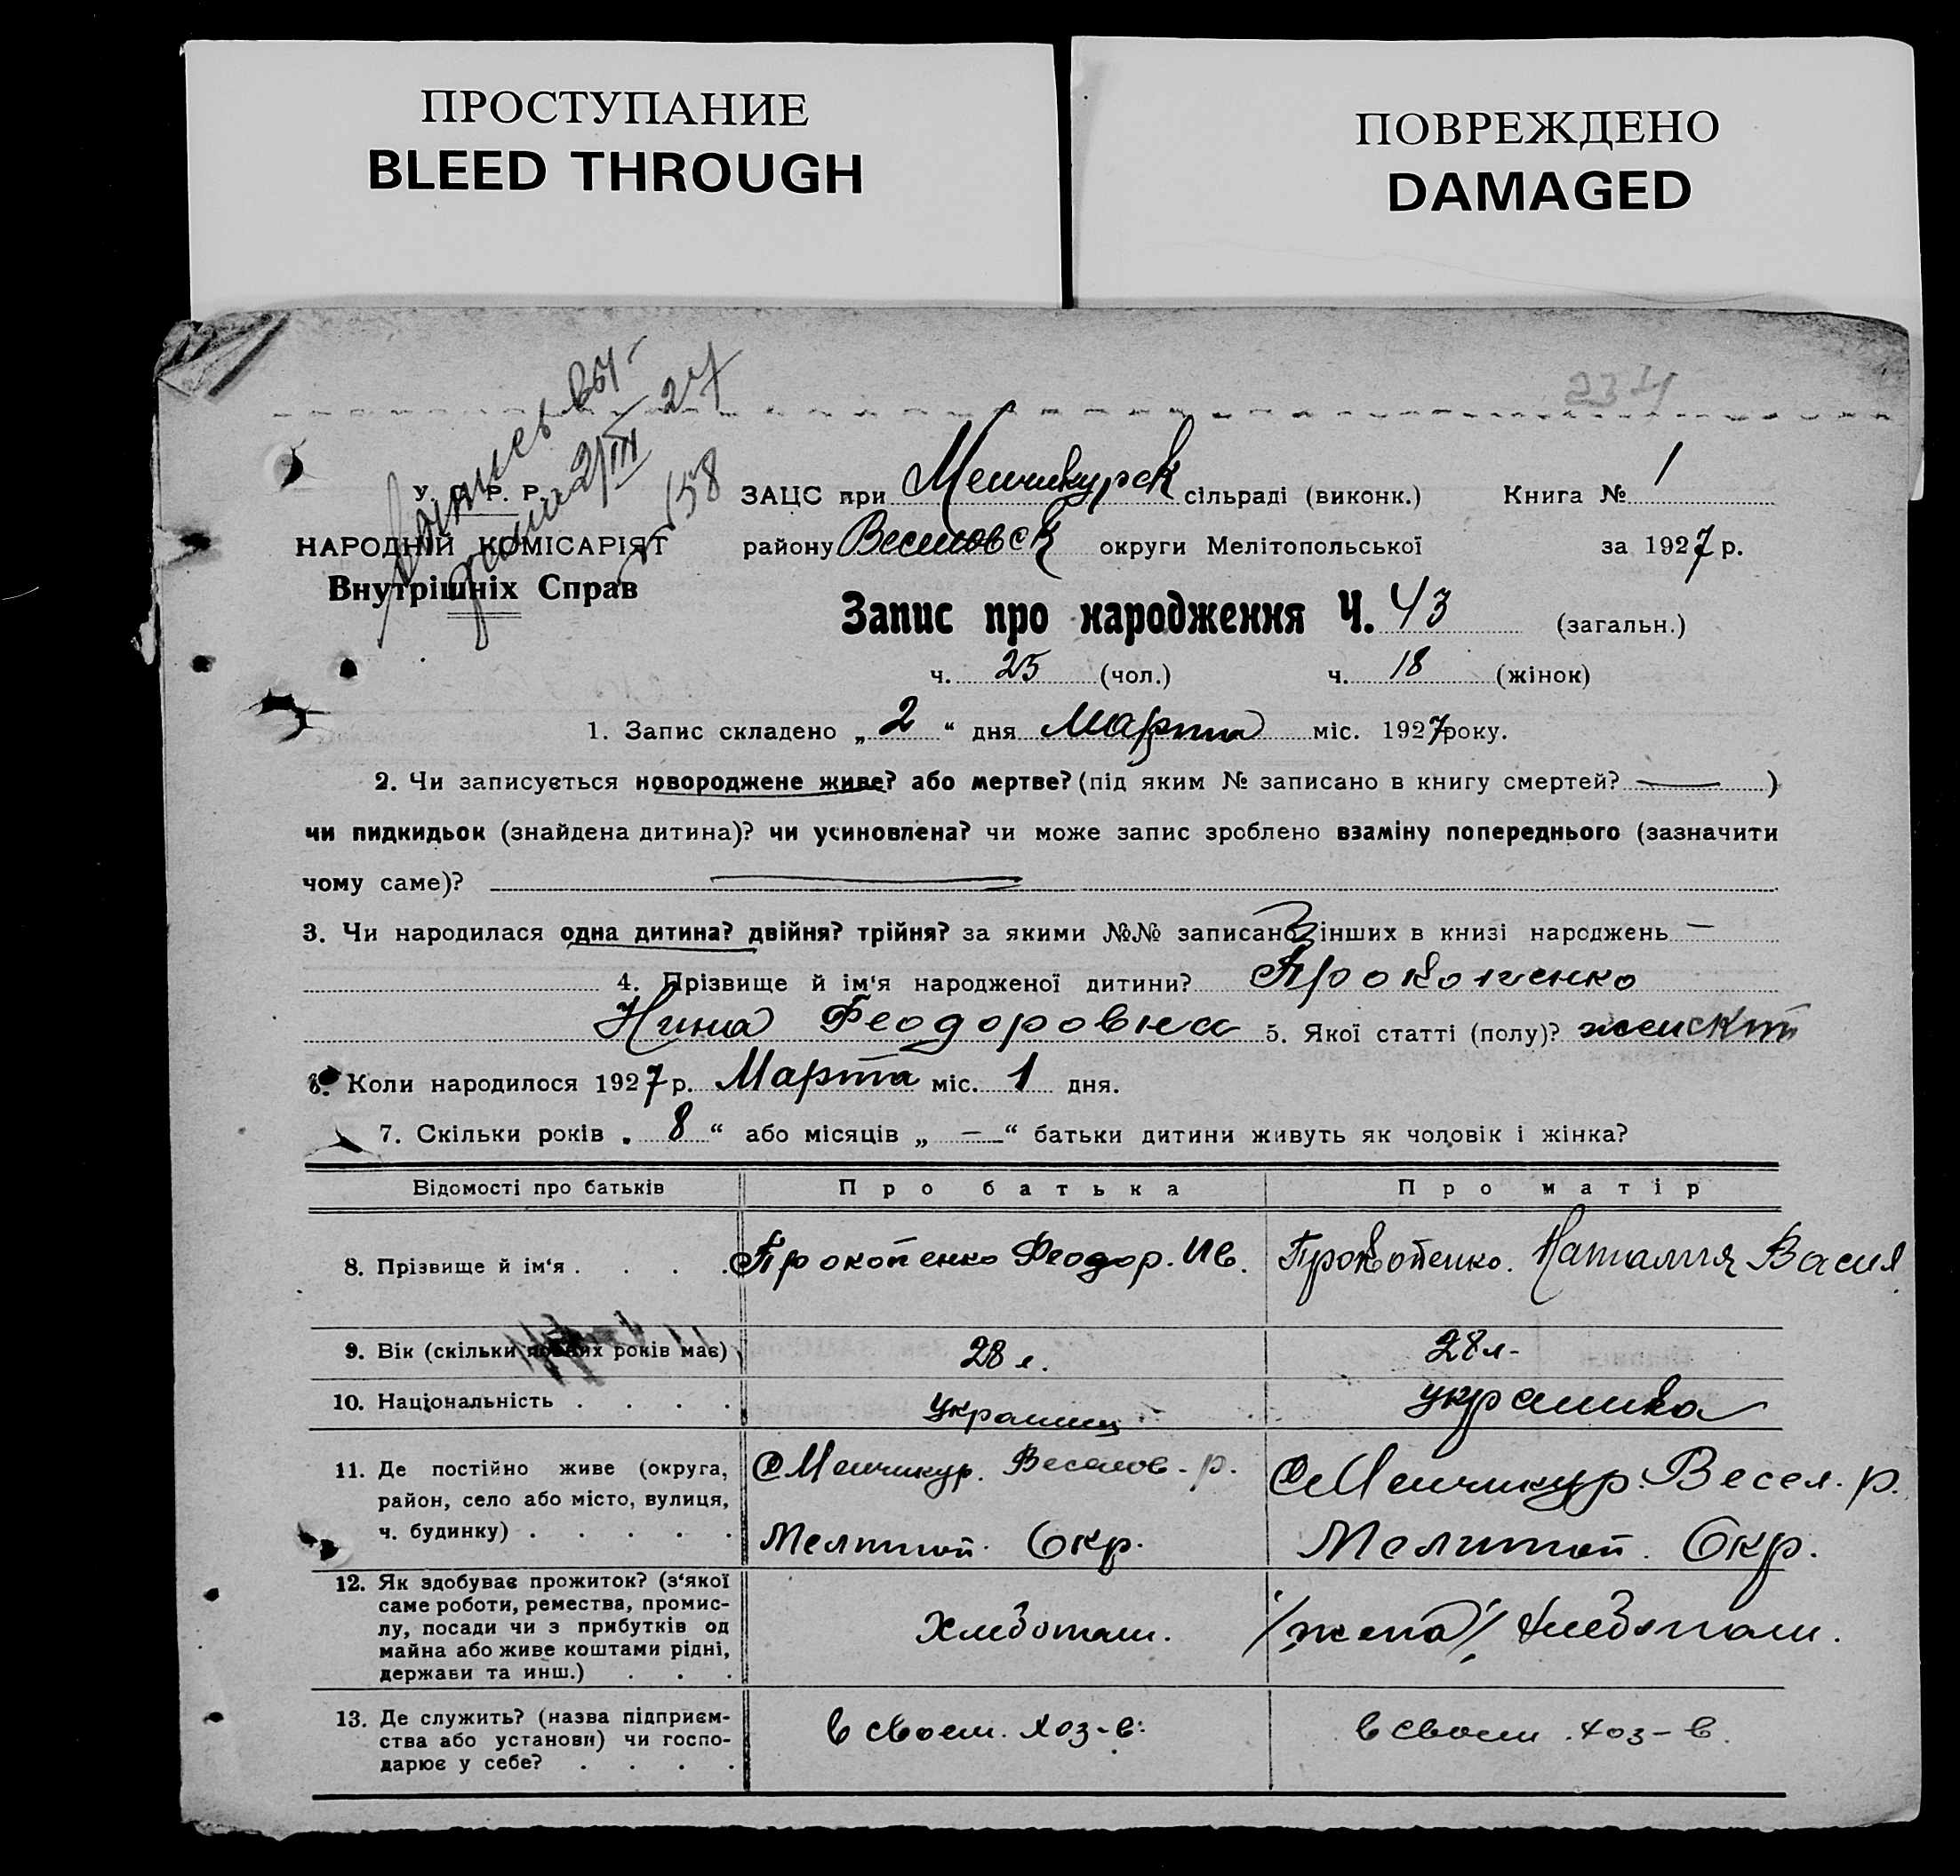 ПРОСТУПАНИЕ
BLEED THROUGH
ПОВРЕЖДЕНО
DAMAGED
234
2/III 27
№ 158
У. С. Р. Р.
НАРОДНІЙ КОМІСАРІЯТ
Внутрішніх Справ
ЗАЦС при Менчикурск сільраді (виконк.) Книга № 1
району Веселовск округи Мелітопольської за 1927 р.
Запис про народження Ч. 43 (загальн.)
ч. 25 (чол.) ч. 18 (жінок)
1. Запис складено „ 2 “ дня Марта міс. 1927 року.
2. Чи записується новороджене живе? або мертве? (під яким № записано в книгу смертей? — )
чи пидкидьок (знайдена дитина)? чи усиновлена? чи може запис зроблено взаміну попереднього (зазначити
чому саме)? —
3. Чи народилася одна дитина? двійня? трійня? за якими №№ записано інших в книзі народжень —
4. Прізвище й ім‘я народженої дитини? Прокопенко
Нина Феодоровна 5. Якої статті (полу)? женский
6. Коли народилося 1927 р. Марта міс. 1 дня.
7. Скільки років „ 8 “ або місяців „ — “ батьки дитини живуть як чоловік і жінка?
Відомості про батьків Про батька Про матір
8. Прізвище й ім‘я . . . . Прокопенко Феодор. Ив. Прокопенко. Наталия Васил
9. Вік (скільки повних років має) 28 л. 28 л-
10. Національність . . . . украинец украинка
11. Де постійно живе (округа, с Менчикур. Веселов-р. с Менчикур. Весел. р.
район, село або місто, вулиця,
ч. будинку) . . . . . Мелитоп. Окр. Мелитоп. Окр.
12. Як здобуває прожиток? (з‘якої
саме роботи, ремества, промис-
лу, посади чи з прибутків од Хлебопаш. /жена/ хлебопаш.
майна або живе коштами рідні,
держави та инш.) . . .
13. Де служить? (назва підприєм- в своем. хоз-в: в своем. хоз-в.
ства або установи) чи госпо-
дарює у себе? . . . .